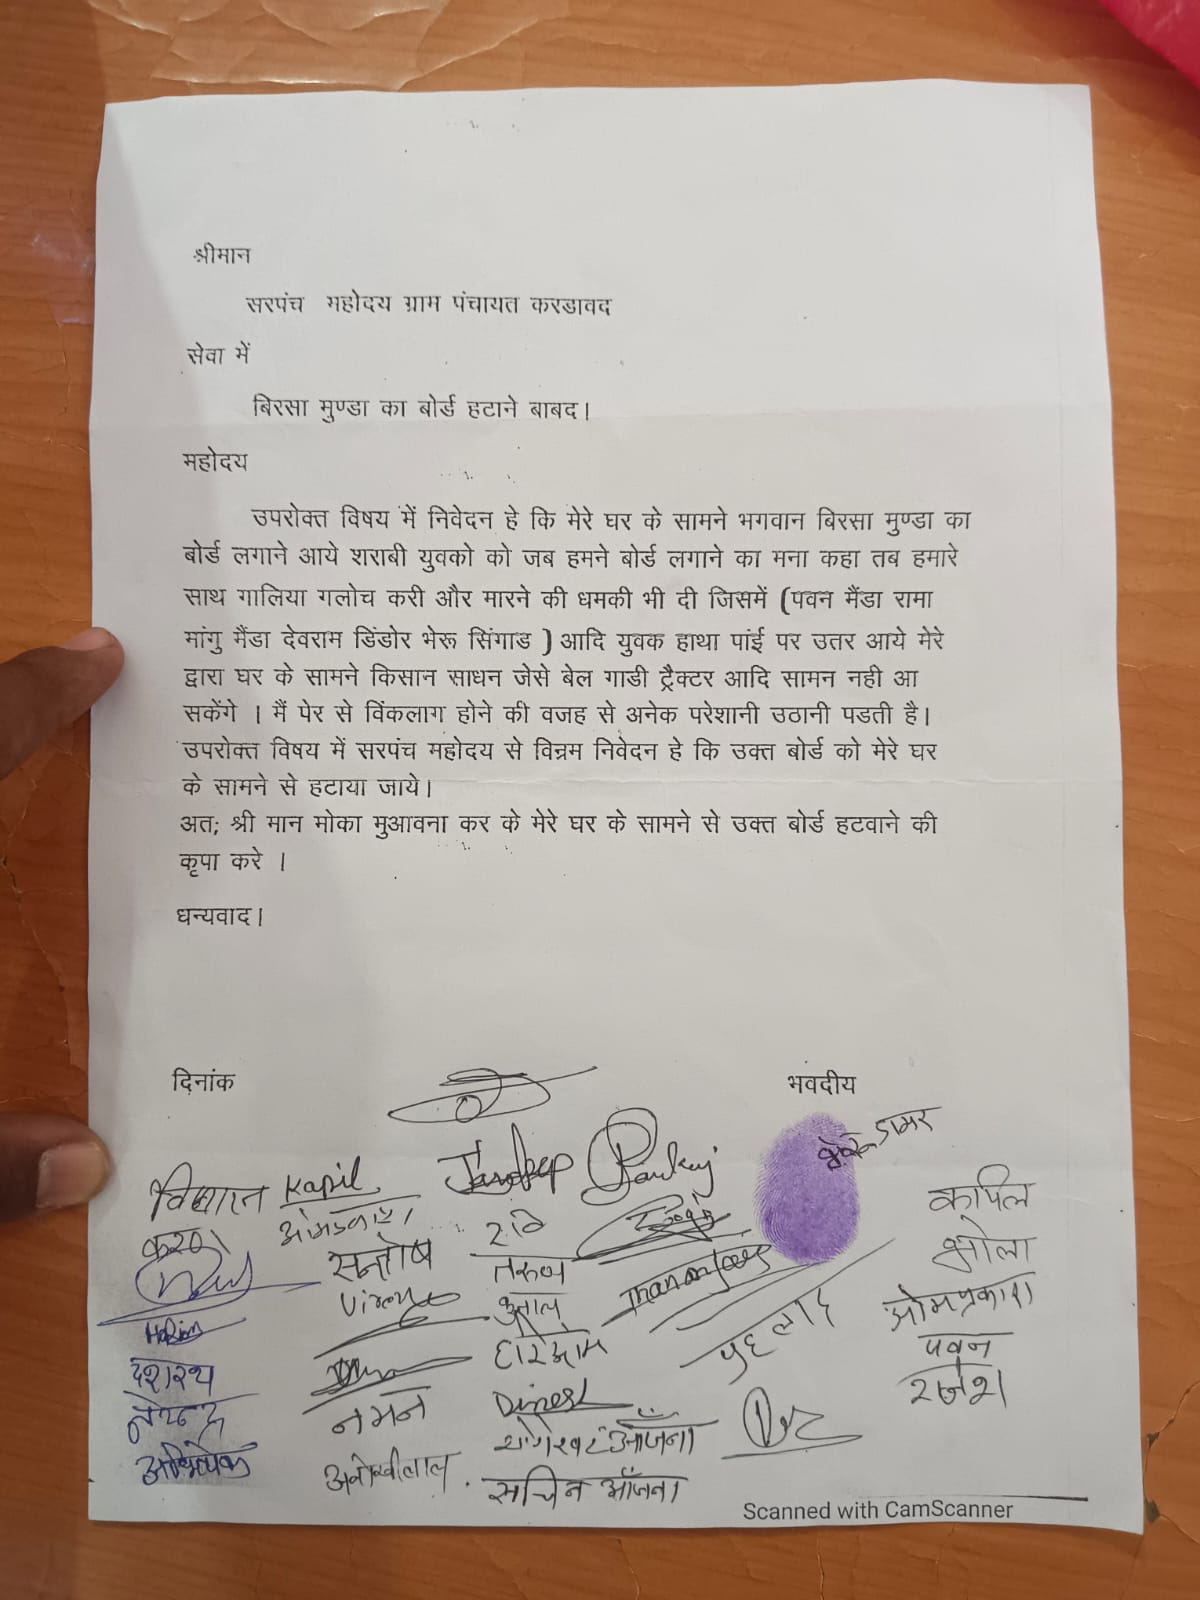 श्रीमान
सरपंच महोदय ग्राम पंचायत करडावद
सेवा में
बिरसा मुण्डा का बोर्ड हटाने बाबद।
महोदय
उपरोक्त विषय में निवेदन हे कि मेरे घर के सामने भगवान बिरसा मुण्डा का
बोर्ड लगाने आये शराबी युवको को जब हमने बोर्ड लगाने का मना कहा तब हमारे
साथ गालिया गलोच करी और मारने की धमकी भी दी जिसमें (पवन मैंडा रामा
मांगु मैंडा देवराम डिंडोर भेरू सिंगाड ) आदि युवक हाथा पांई पर उतर आये मेरे
द्वारा घर के सामने किसान साधन जेसे बेल गाडी ट्रैक्टर आदि सामन नही आ
सकेंगे । मैं पेर से विंकलाग होने की वजह से अनेक परेशानी उठानी पडती है।
उपरोक्त विषय में सरपंच महोदय से विन्रम निवेदन हे कि उक्त बोर्ड को मेरे घर
के सामने से हटाया जाये।
अत; श्री मान मोका मुआवना कर के मेरे घर के सामने से उक्त बोर्ड हटवाने की
कृपा करे ।
धन्यवाद।
दिनांक
भवदीय
डामर
Kapil
Pankaj
कपिल
सन्तोष
रवि
भोला
तरुण
ओमप्रकाश
पवन
दशरथ
राजेश
नमन
Dinesh
अभिषेक
अनोखीलाल
सचिन आँजना
Scanned with CamScanner